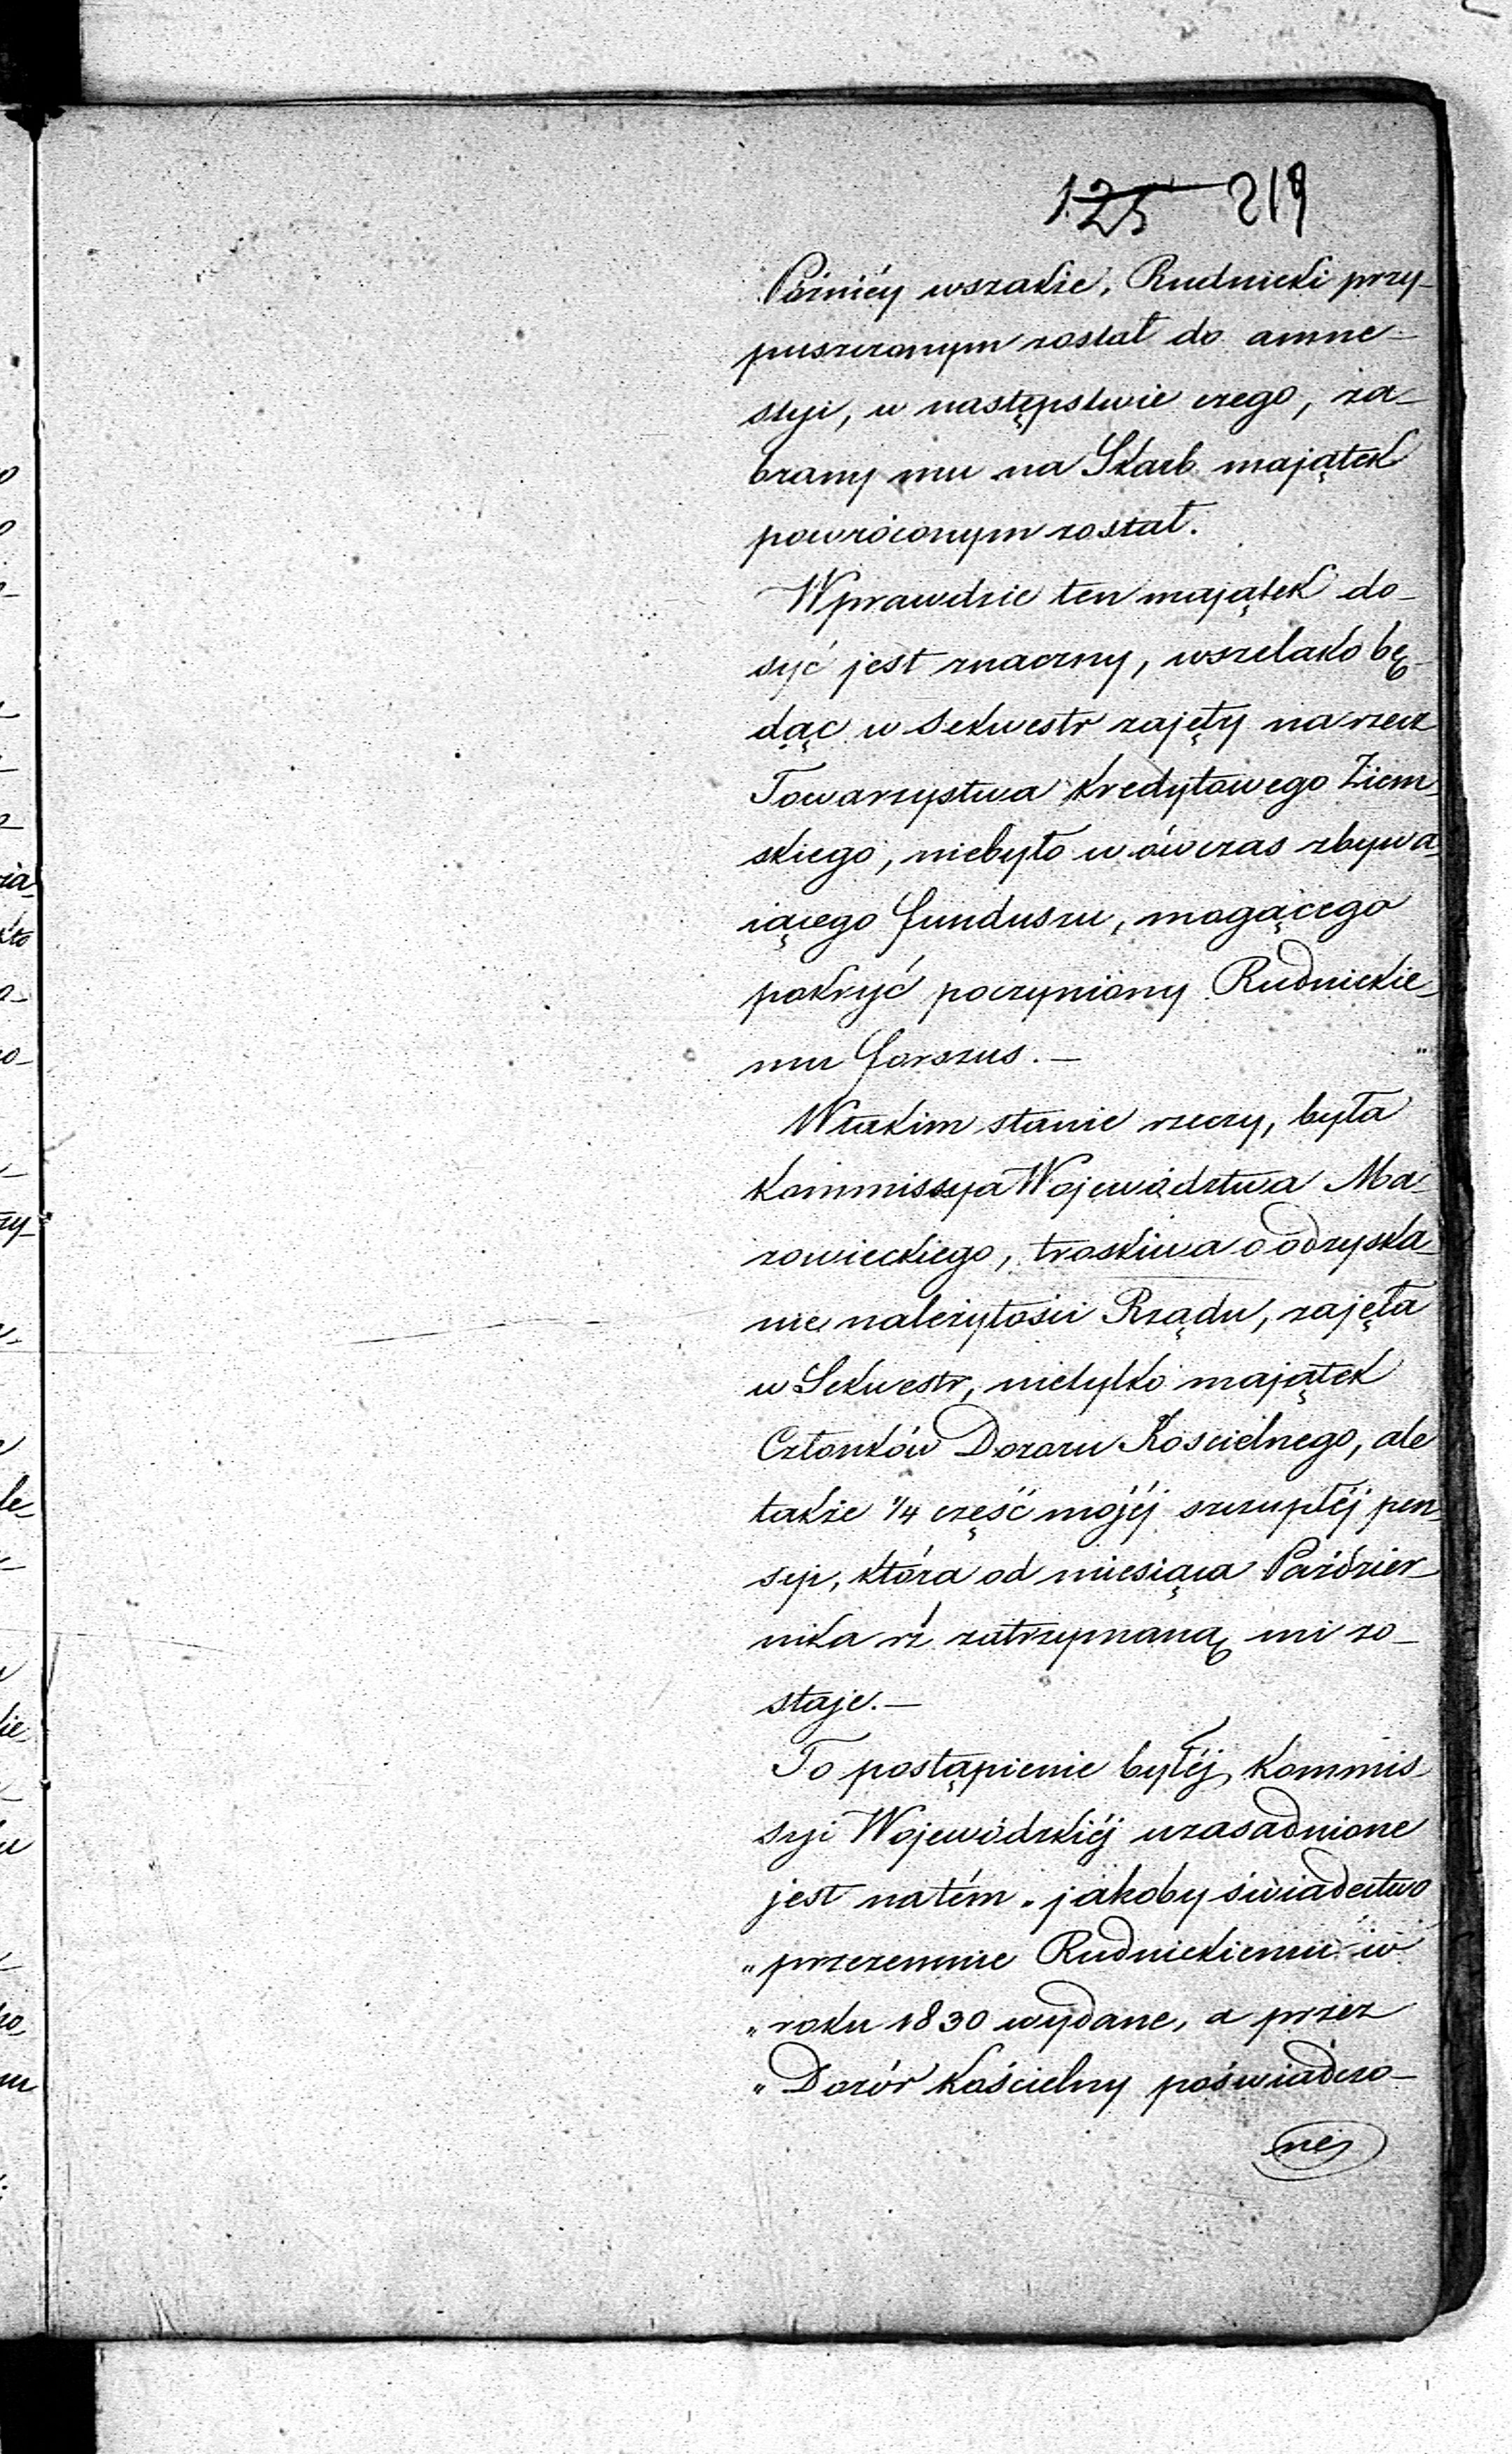 125 219
Pózniéy wszakże, Rudnicki przy-
puszczonym został do amne-
styi, w następstwie czego, za-
brany mu na Skarb majątek
powróconym został.
Wprawdzie ten majątek do-
syć jest znaczny, wszelako bę-
dąc w Sekwestr zajęty na rzecz
Towarzystwa Kredytowego Ziem-
skiego, niebyło w ówczas zbywa-
iącego funduszu, mogącego
pokryć poczyniony Rudnickie-
mu forszus. —
W takim stanie rzeczy, była
Kommissya Województwa Ma-
zowieckiego, troskliwa o odzyska-
nie należytości Rządu, zajęła
w Sekwestr, nietylko majątek
Członków Dozoru Kościelnego, ale
także 1/4 część mojéj szczupłéj pen-
syi, która od miesiąca Paździer-
nika rż zatrzymaną mi zo-
staje. —
To postąpienie byłéj Kommis-
syi Wojewódzkiéj uzasadnione
jest na tém „jakoby świadectwo
„przezemnie Rudnickiemu w
„roku 1830 wydane, a przez
„Dozór Kościelny poświadczo-
ne,